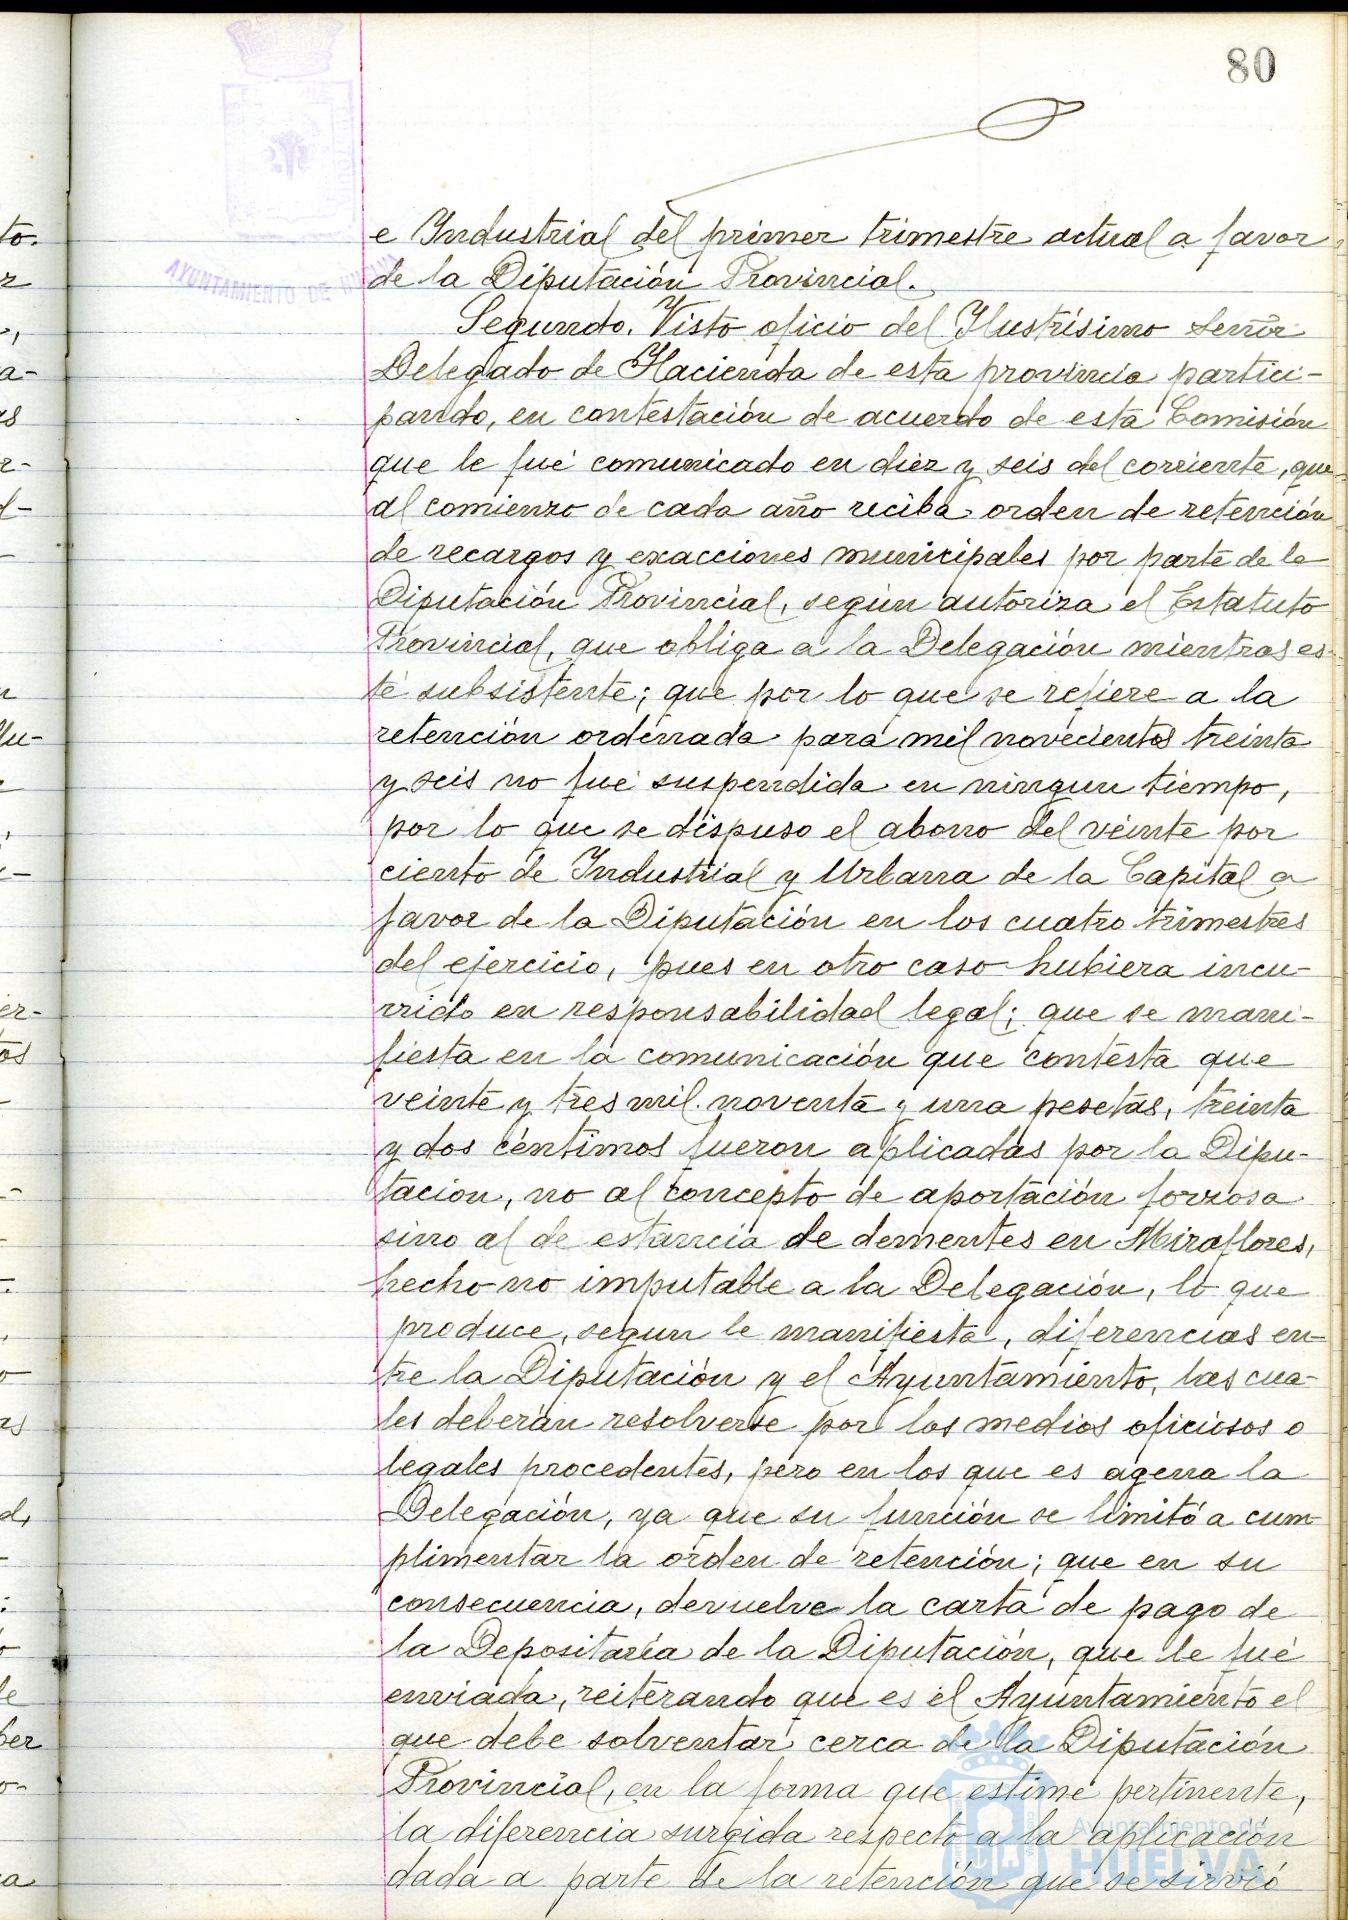 80
e Industrial del primer trimestre actual a favor
de la Diputación Provincial.
AYUNTAMIENTO DE HUELVA
Segundo. Visto oficio del Ilustrísimo Señor
Delegado de Hacienda de esta provincia partici-
pando, en contestación de acuerdo de esta Comisión
que le fué comunicado en diez y seis del corriente, que
al comienzo de cada año reciba orden de retención
de recargos y exacciones municipales por parte de la
Diputación Provincial, según autoriza el Estatuto
Provincial, que obliga a la Delegación mientras es-
té subsistente; que por lo que se refiere a la
retención ordenada para mil novecientos treinta
y seis no fué suspendida en ningun tiempo,
por lo que se dispuso el abono del veinte por
ciento de Industrial y Urbana de la Capital a
favor de la Diputación en los cuatro trimestres
del ejercicio, pues en otro caso hubiera incu-
rrido en responsabilidad legal; que se mani-
fiesta en la comunicación que contesta que
veinte y tres mil noventa y una pesetas, treinta
y dos céntimos fueron aplicadas por la Dipu-
tación, no al concepto de aportación forzosa
sino al de estancia de dementes en Miraflores,
hecho no imputable a la Delegación, lo que
produce, segun le manifiesta, diferencias en-
tre la Diputación y el Ayuntamiento, las cua-
les deberán resolverse por los medios oficiosos o
legales procedentes, pero en los que es agena la
Delegación, ya que su función se limitó a cum-
plimentar la orden de retención; que en su
consecuencia, devuelve la carta de pago de
la Depositaría de la Diputación, que le fué
enviada, reiterando que es el Ayuntamiento el
que debe solventar cerca de la Diputación
Provincial, en la forma que estime pertinente,
la diferencia surgida respecto a la aplicación
dada a parte de la retención que se sirvió
Ayuntamiento de
HUELVA